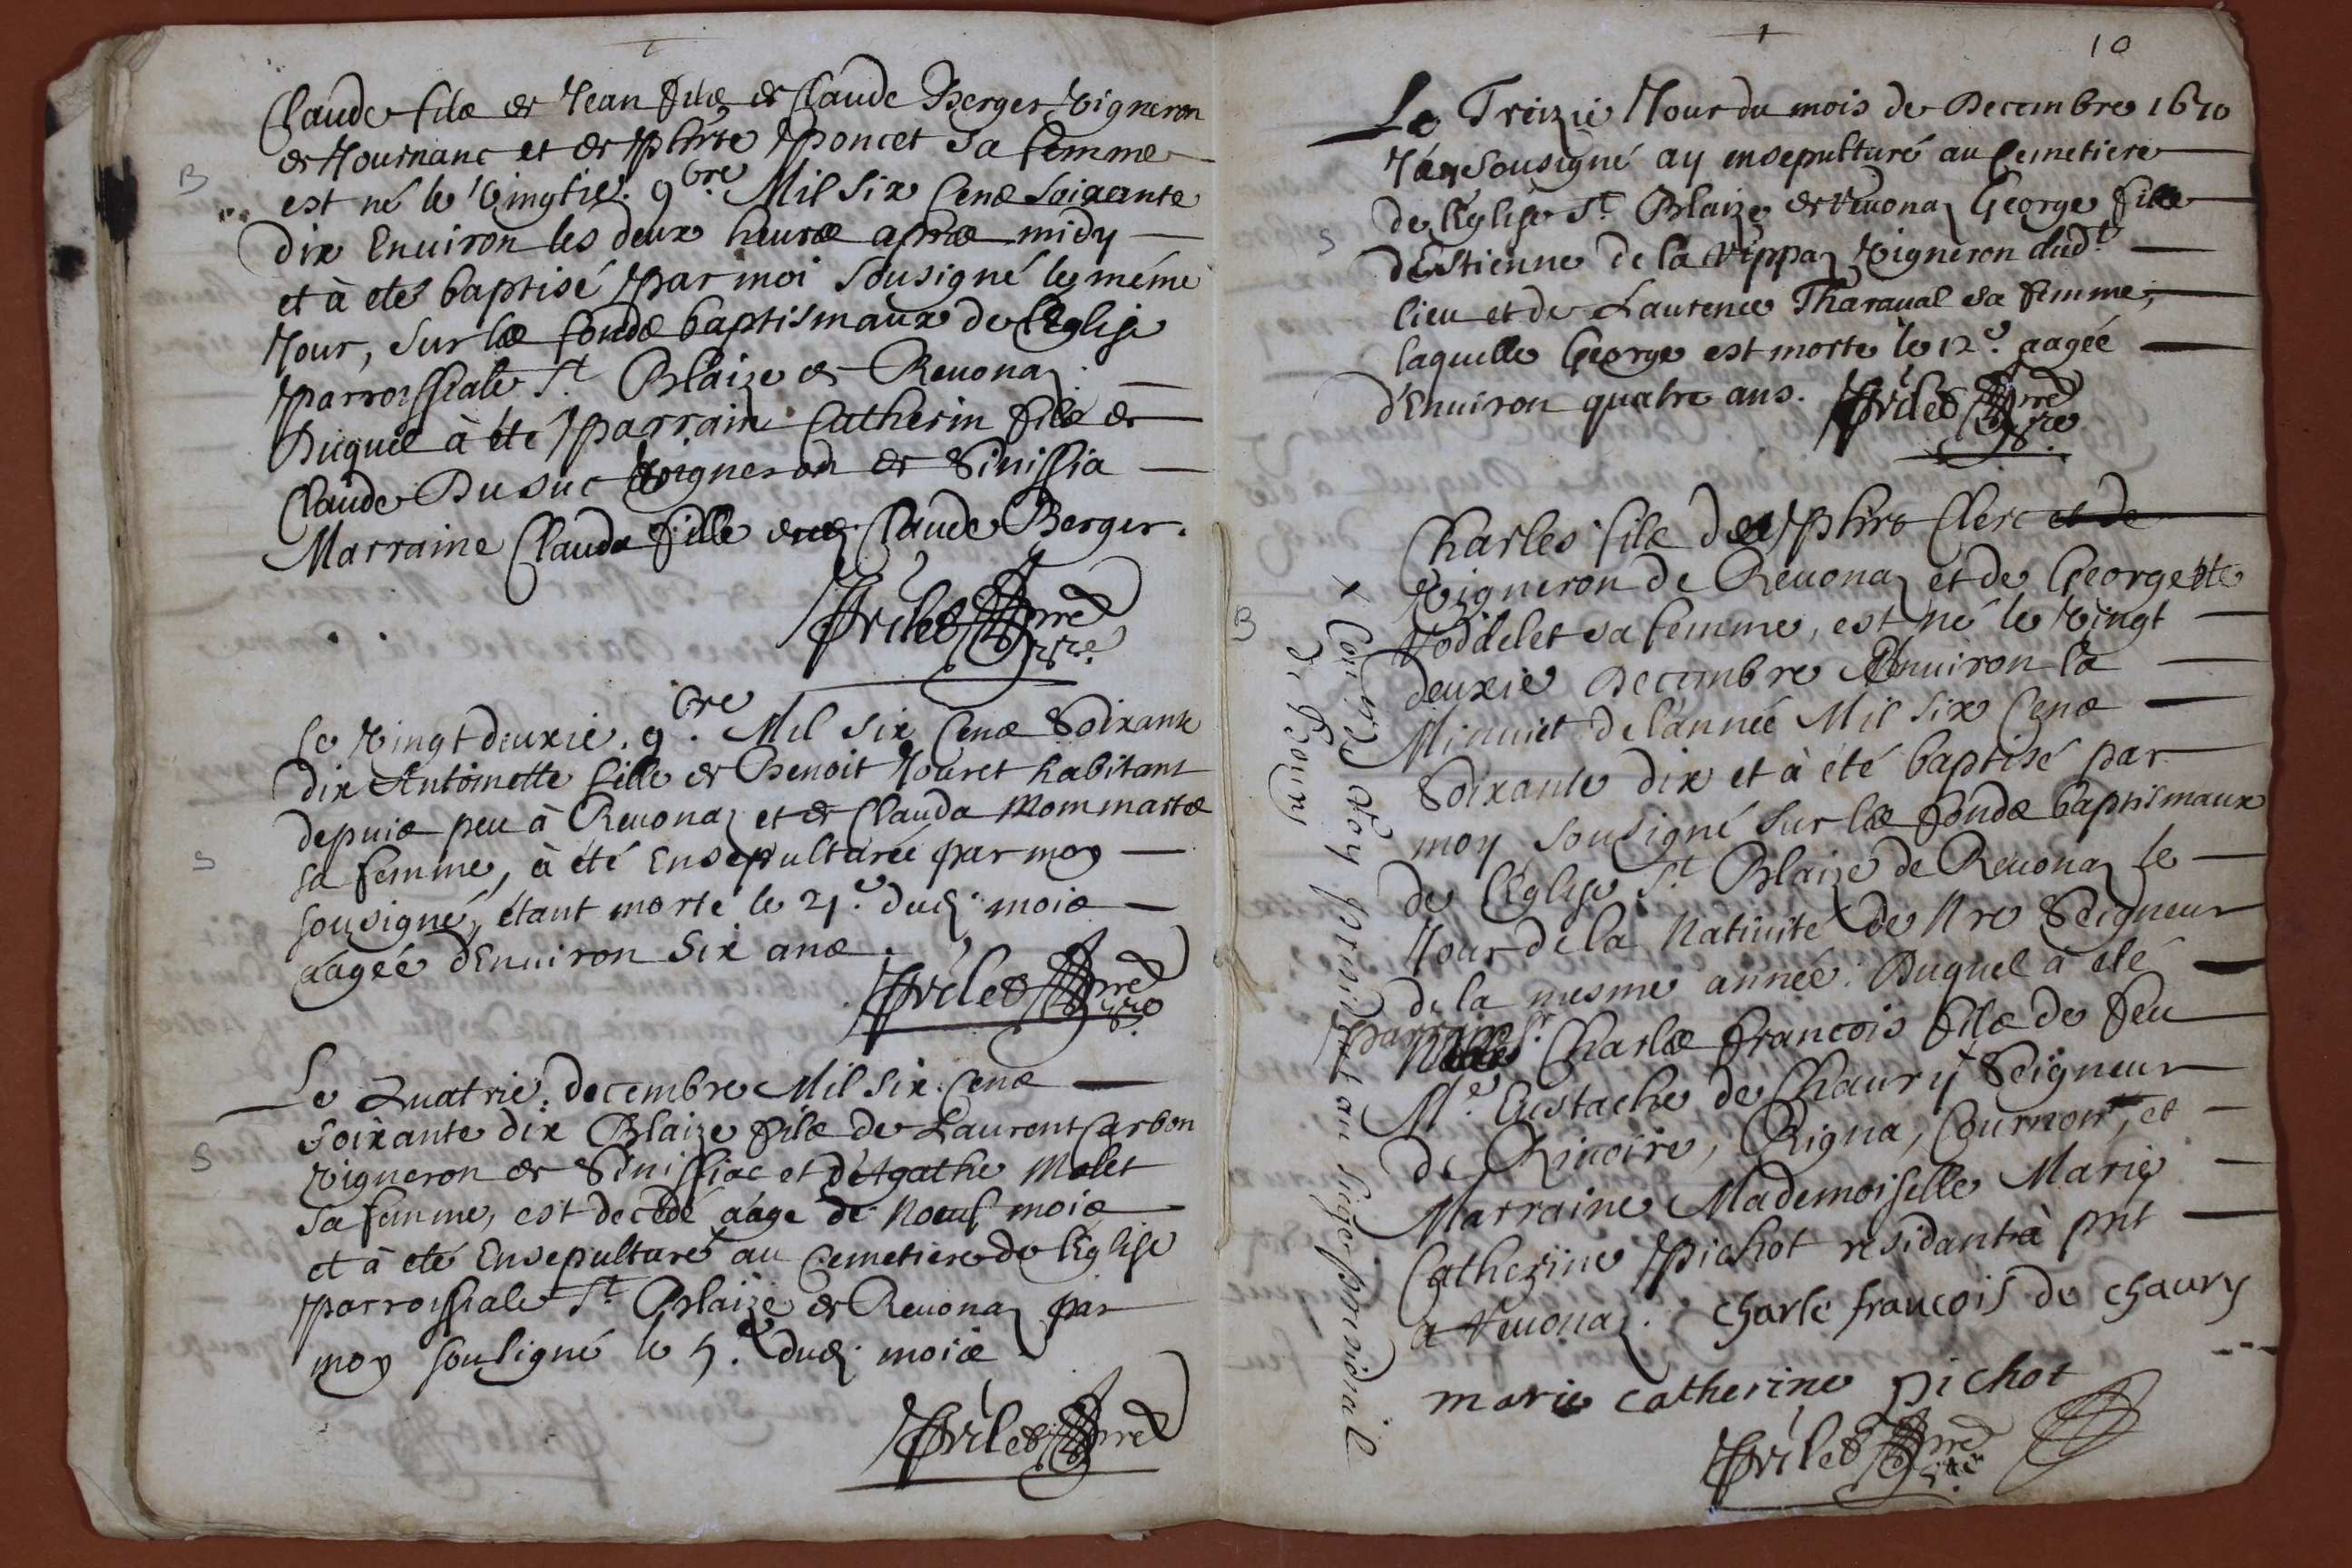 Claude fils de Jean fils de Claude Berger Vigneron
de Journanc et de Phirte Poncet sa femme
B
est né le Vingtie. 9bre Mil six Cens soixante
dix Enuiron les deux heures apres midy
et à eté baptisé par moi sousigné le même
Jour, sur les fonds baptismaux de l'Eglise
parroissiale St Blaize de Reuonaz.
Duquel à été parrain Catherin fils de
Claude Dusuc Vigneron de Sinissia
Marraine Clauda fille dud. Claude Berger.
pre
Le Vingtdeuxie. 9bre Mil six Cens Soixante
dix Antoinette fille de Benoit Jouret habitant
depuis peu à Reuonaz et de Clauda Mommartes
S
sa femme, à été Ensepulturée par moy
sousigné, étant morte le 21e dud. mois
aagée d'Enuiron Six ans.
pre
Le Quatrie. decembre Mil Six. Cens
S
soixante dix Blaize fils de Laurent Carbon
Vigneron de Sinissiac et d'Agathe Molet
sa femme, est decedé aage de Noeuf mois
et à eté Ensepulturé au Cemetiere de l'Eglise
parroissiale St Blaize de Reuonaz par
moy sousigné le 5e dud. mois
pre
10
Le Treizie Jour du mois de Decembre 1670
Jáy Sousigné ay ensepulturé au Cemetiere
de l'Eglise St Blaize de Reuonaz George fille
S
d'Estienne de la Vippaz Vigneron dudt
lieu et de Laurence Tharaual sa femme,
laquelle George est morte le 12e aagée
d'Enuiron quatre ans.
pre
Charles fils de Phire Clerc et de
Vigneron de Reuonaz et de Georgette
B
Voddelet sa femme, est né le Vingt
deuxie Decembre Enuiron la
Minuit de l'année Mil Six Cens
Soixante dix et à été baptisé par
moy sousigné sur les fonds baptismaux
de l'Eglise St Blaize de Reuonaz le
Jour de la Natiuité de Nre Seigneur
de la mesme année. Duquel à eté
parrain Sr. Charles francois fils de feu
Me. Eustache de Chaury + Seigneur
de Rinoire, Rigna, Cournon, et
Marraine Mademoiselle Marie
Catherine Pichot residant à pnt
a Reuonaz. charle francois de chaury
marie catherine pichot
pre
+ Conr. du Roy president au siege presidial
de Bourg